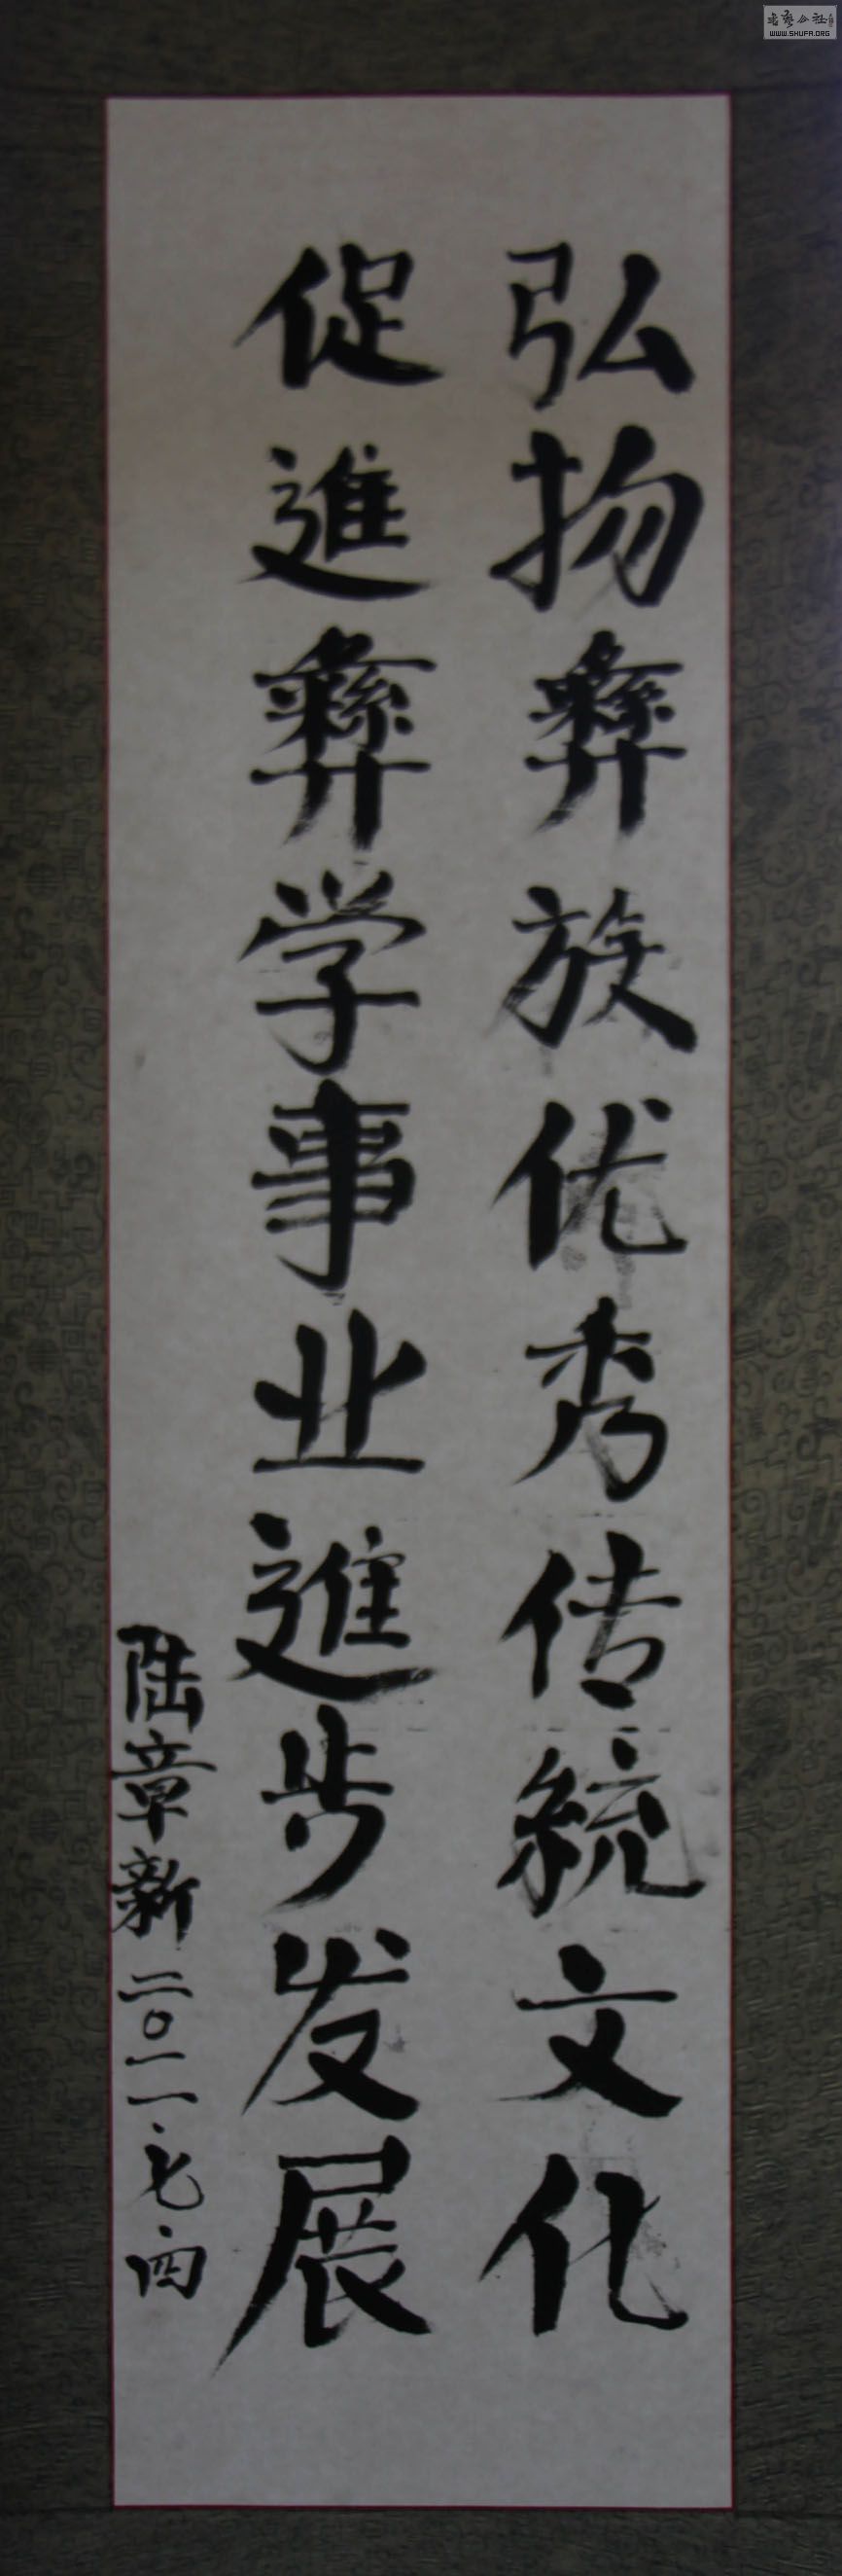 弘扬彝族优秀传统文化
促進彝学事业進步发展
陆章新二〇一一.七.四
WWW.SHUFA.ORG